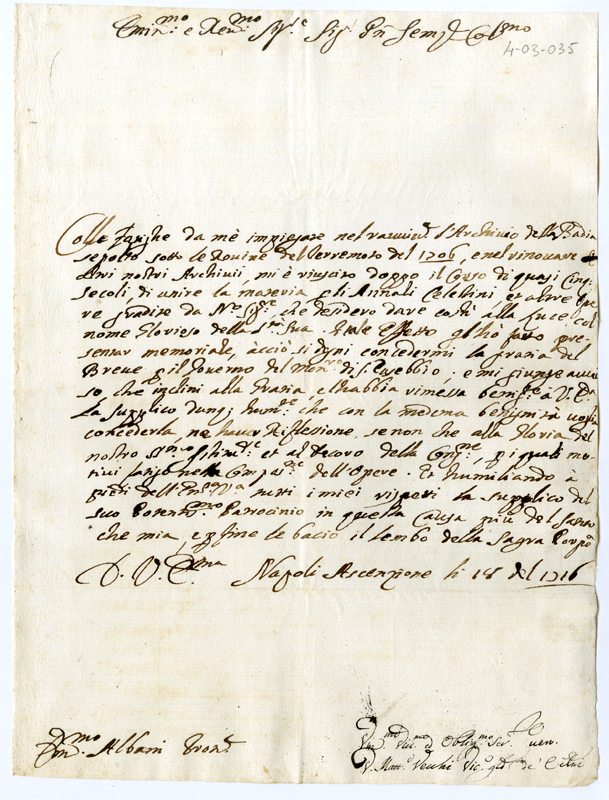 Emin.mo e Rev.mo Sig.r Sig.r Pn Semp. Col.mo
4-03-035
Colle fatighe da mè impiegate nel l'Archivio della Badia
sepolto sotto le Rovine del terremoto del 1706, e nel rinovare
altri nostri Archivii, mi è riuscito doppo il Corso di quasi Cinq.
secoli di unire la materia p gli Annali Celestini et altre Ope
re gradite da N.ro Sig.re che desidero dare tosti alla luce col
nome Glorioso della S.tà Sua. A tale effetto gl'hò fatto pre
sentar memoriale, acciò si degni concedermi la grazia del
Breve p il Governo del Mon.ro di S. Eusebio, e mi giunge avvi
so, che inclini alla Grazia, e l'habbia rimessa à V. E.
La supplico dunq; hum.te che con la medema voglia
concederla, ne haver Riflessione, se non che alla Gloria del
nostro S.mo et al decoro della Cong.ne, p i quali mo
tivi fatigo nella dell'Opere. Et humiliando à
piedi dell'Em.za V.a tutti i miei rispetti la supplico del
suo Potent.mo Patrocinio in questa Causa più del Santo
che mia, e p fine le bacio il lembo della Sagra Porpo
D. V. E.ma Napoli Ascenzione li 18 del 1716
Em.mo Albani
Um.mo Div.mo et Oblig.mo Ser.
D. Matt.o Vecchi Vic.o de Celni